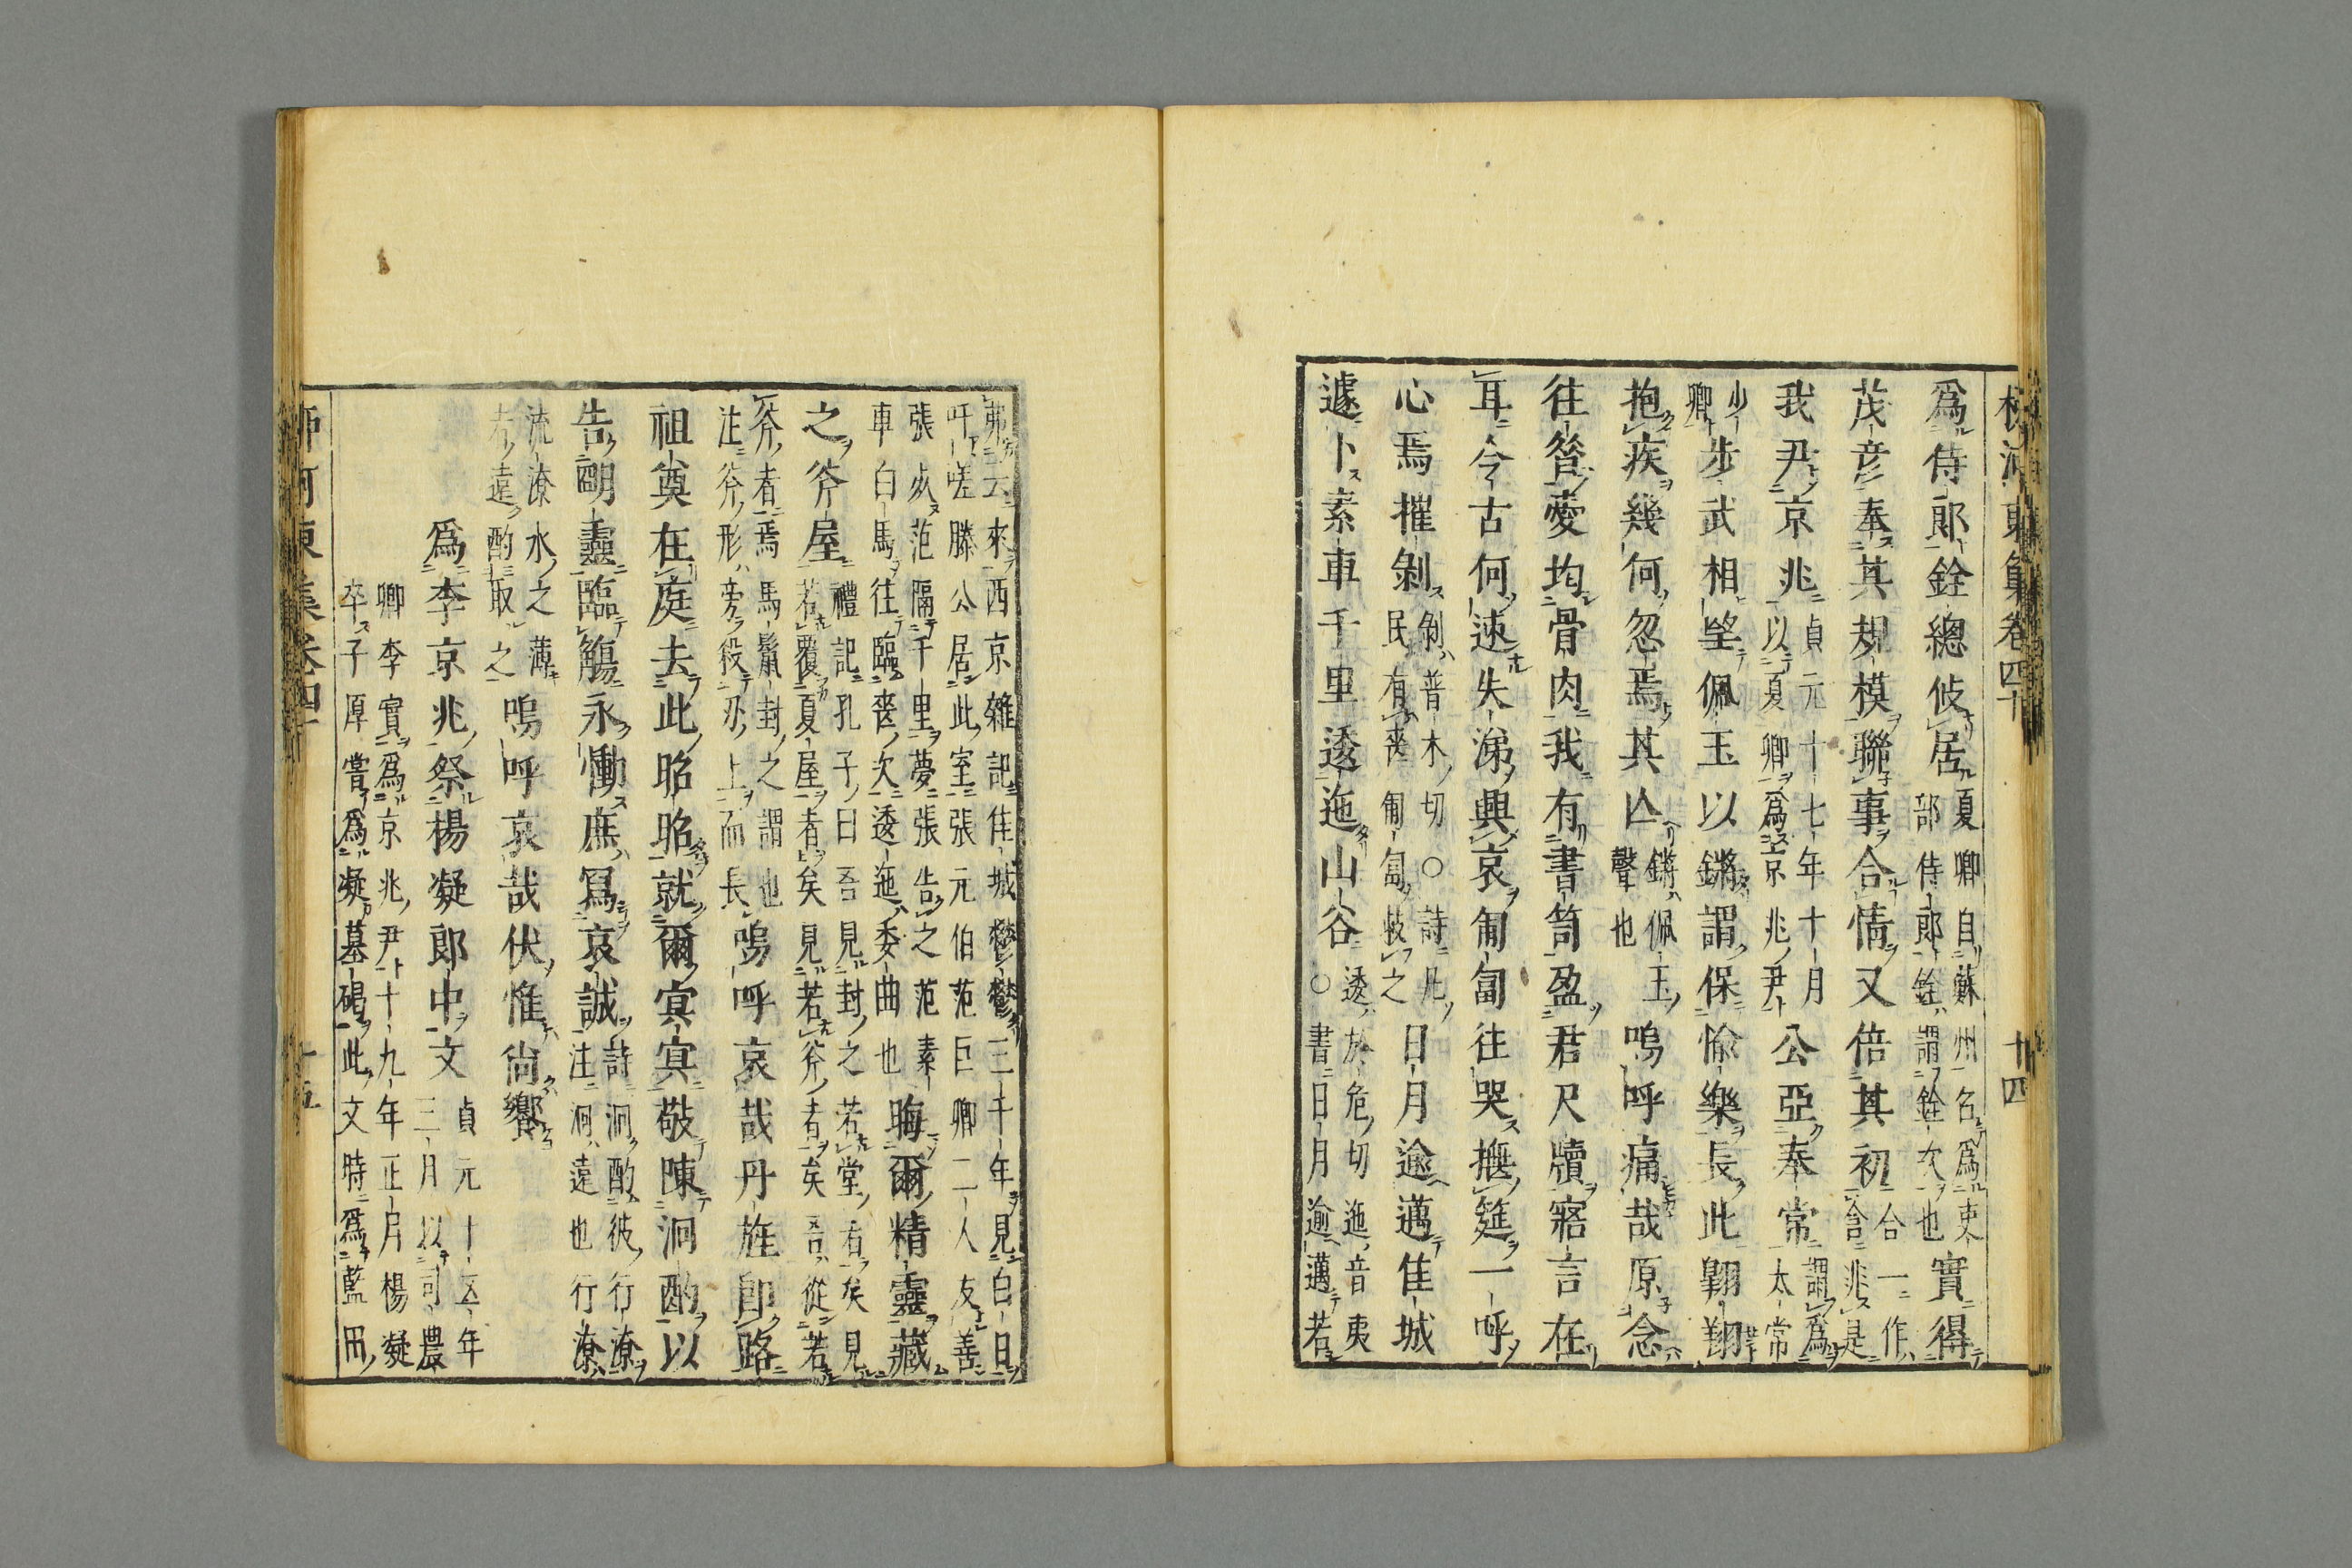 柳河東集卷四十 十四
爲侍郎銓總攸居夏卿自蘇州名爲吏部侍郎銓謂銓次也實得
茂彦奉其規模聯事合情又倍其初一作合一含非是
我尹京兆貞元十七年十月以夏卿爲京兆尹公亞奉常謂爲太常
少卿步武相望佩玉以鏘謂保愉樂長此翺翔
抱疾幾何忽焉其亾鏘佩玉聲也嗚呼痛哉原念
往昝愛均骨肉我有書笥盈君尺牘寤言在
耳今古何速失涕興哀匍匐往哭撫筵一呼
心焉摧剝剝普木切○詩凡民有喪匍匐救之日月逾邁佳城
遽卜素車千里逶迤山谷逶於危切迤音夷○書日月逾邁若
弗云來西京雜記佳城鬱鬱三千年見白日
吁嗟滕公居此室張元伯范巨卿二人友善
張歿范隔千里夢張告之范素
車白馬往臨喪次逶迤委曲也晦爾精靈藏
之斧屋禮記孔子曰吾見封之若堂者矣見若覆夏屋者矣見若斧者矣吾從若
斧者焉馬鬣封之謂也注斧形旁殺刃上而長嗚呼哀哉丹旌卽路
祖奠在庭去此昭昭就爾冥冥敬陳泂酌以
告明靈臨觴永慟庶寫哀誠詩泂酌彼行潦注泂遠也行潦
流潦水之薄者遠酌取之嗚呼哀哉伏惟尚饗
爲李京兆祭楊凝郎中文貞元十五年三月以司農
卿李實爲京兆尹十九年正月楊凝
卒子厚嘗爲凝墓碣此文時爲藍田
柳河東集卷四十 十五